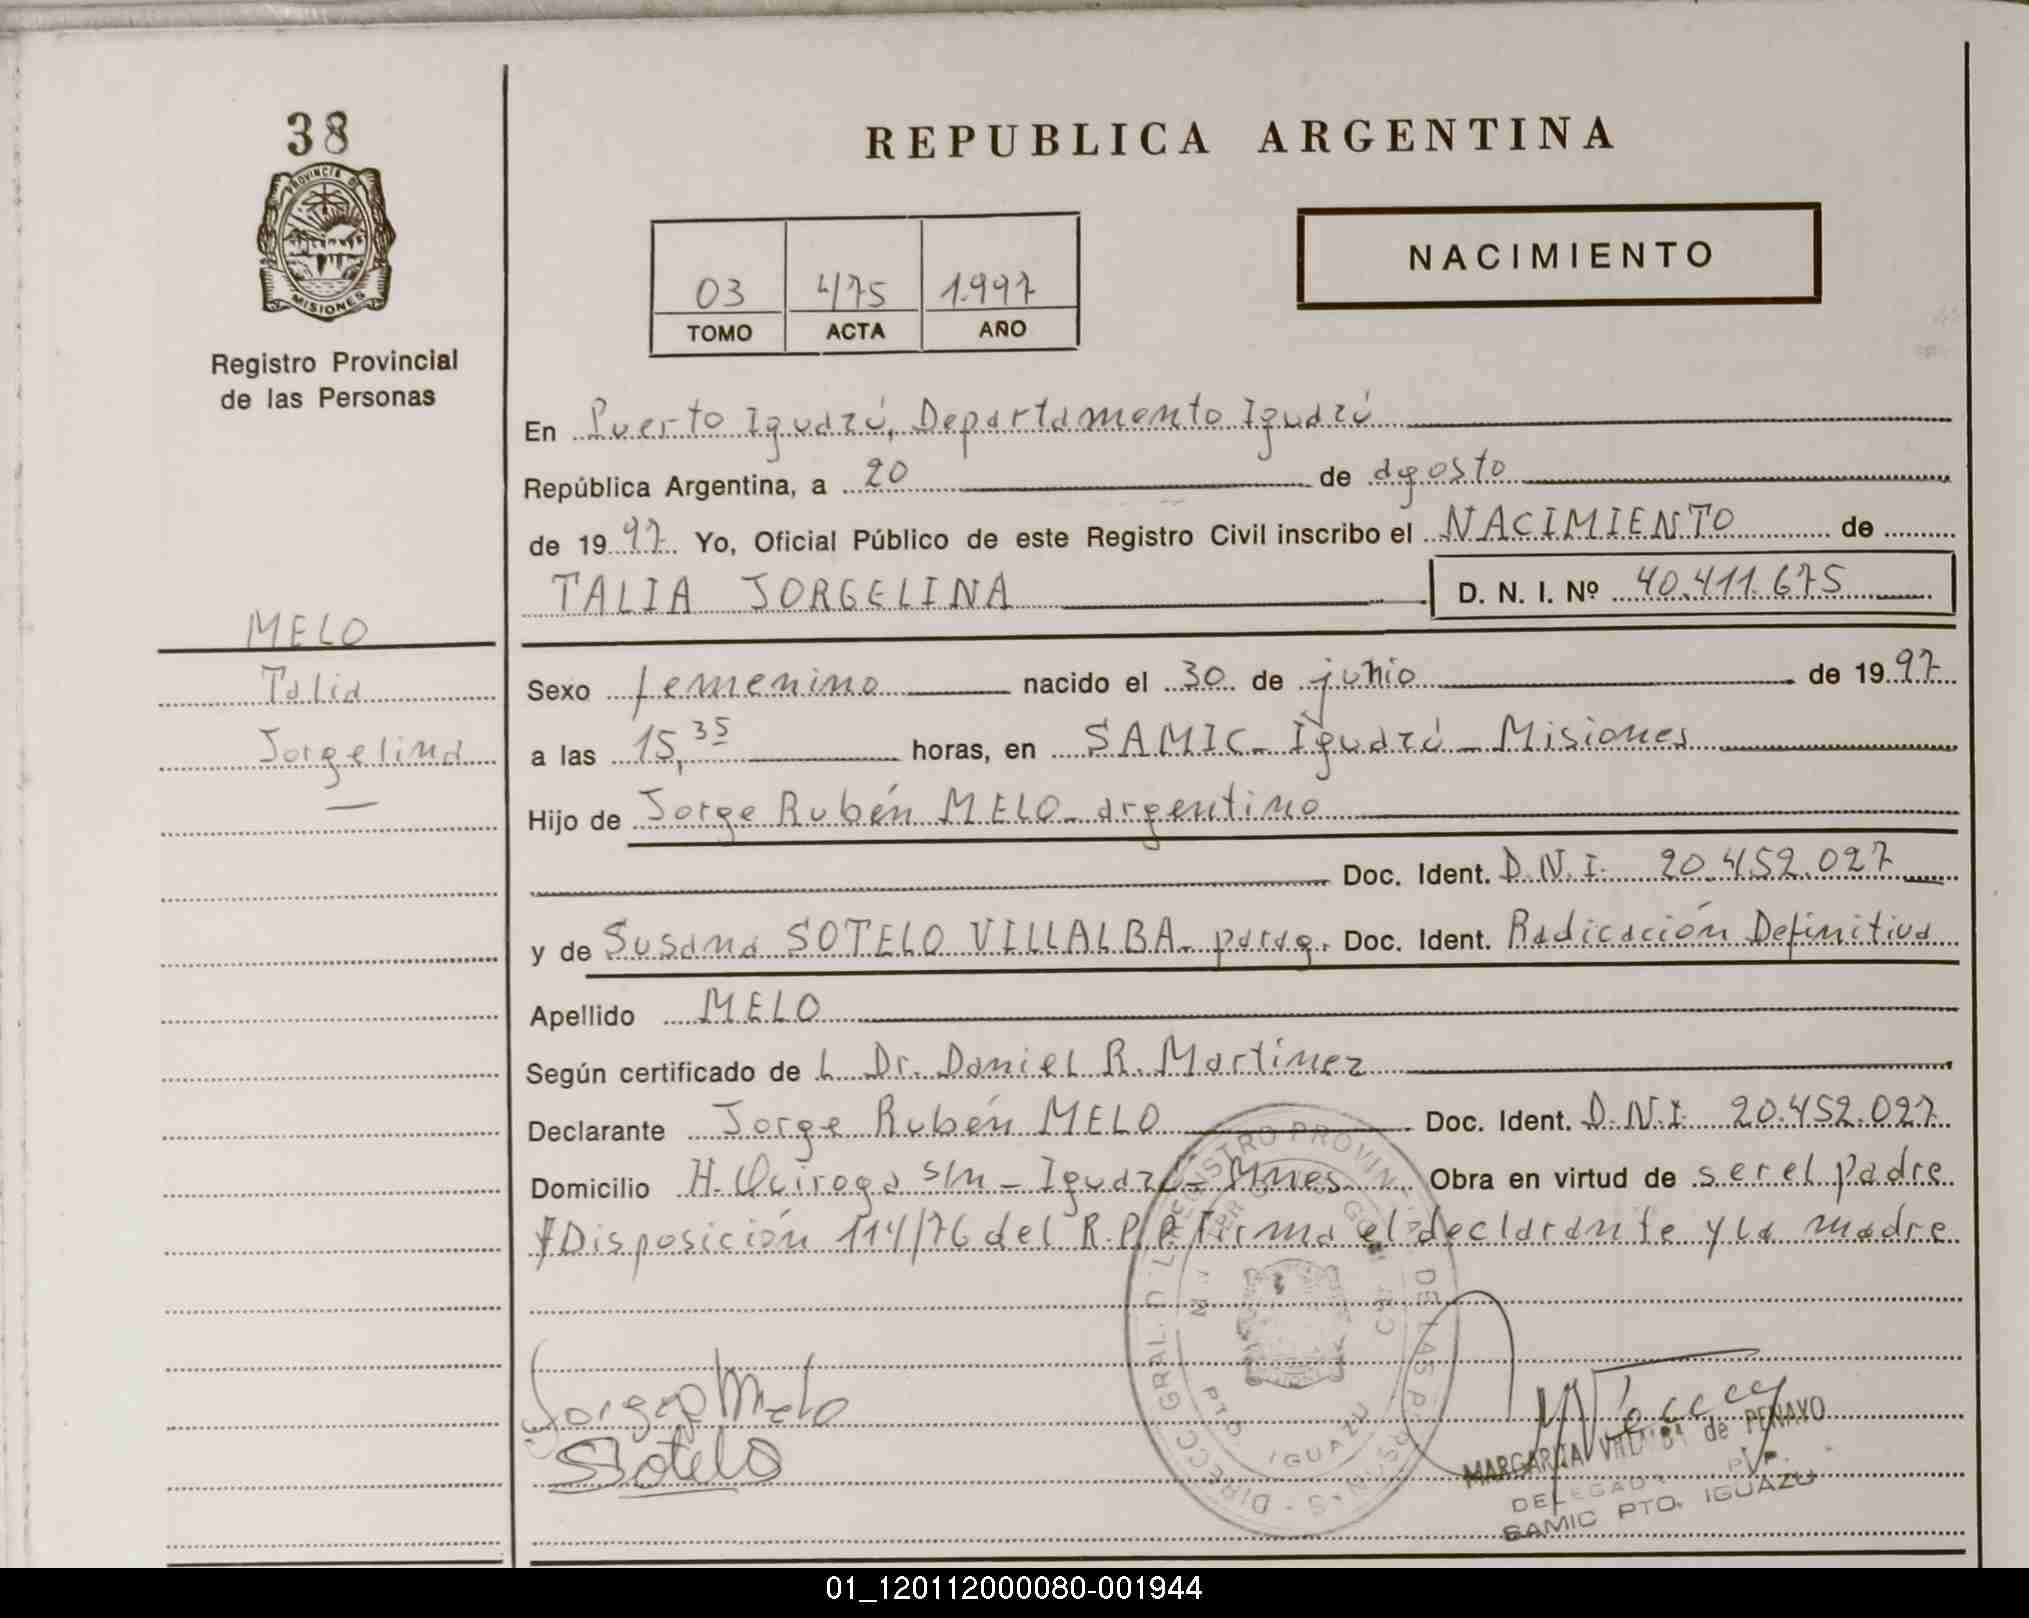 38
PROVINCIA DE
MISIONES
Registro Provincial
de las Personas
REPUBLICA ARGENTINA
NACIMIENTO
03 475 1.997
TOMO ACTA AÑO
En Puerto Iguazú, Departamento Iguazú
República Argentina, a 20 de agosto
de 1997. Yo, Oficial Público de este Registro Civil inscribo el NACIMIENTO de
TALIA JORGELINA D. N. I. Nº 40.411.675
MELO
Talia
Jorgelina
Sexo femenino nacido el 30 de junio de 1997
a las 15,35 horas, en SAMIC - Iguazú - Misiones
Hijo de Jorge Rubén MELO - argentino
Doc. Ident. D.N.I. 20.452.027
y de Susana SOTELO VILLALBA - parag. Doc. Ident. Radicación Definitiva
Apellido MELO
Según certificado de L Dr. Daniel R. Martínez
Declarante Jorge Rubén MELO Doc. Ident. D.N.I. 20.452.027
Domicilio H. Quiroga s/n - Iguazú - Mnes Obra en virtud de ser el padre
y Disposición 114/76 del R.P.P. Firma el declarante y la madre
Jorge Melo
Sotelo
DIRECC. GRAL. DEL REGISTRO PROVIN. DE LAS PERSONAS
PTO. IGUAZU
MARGARITA VILLALBA de PENAYO
DELEGADA
SAMIC PTO. IGUAZU
01_120112000080-001944